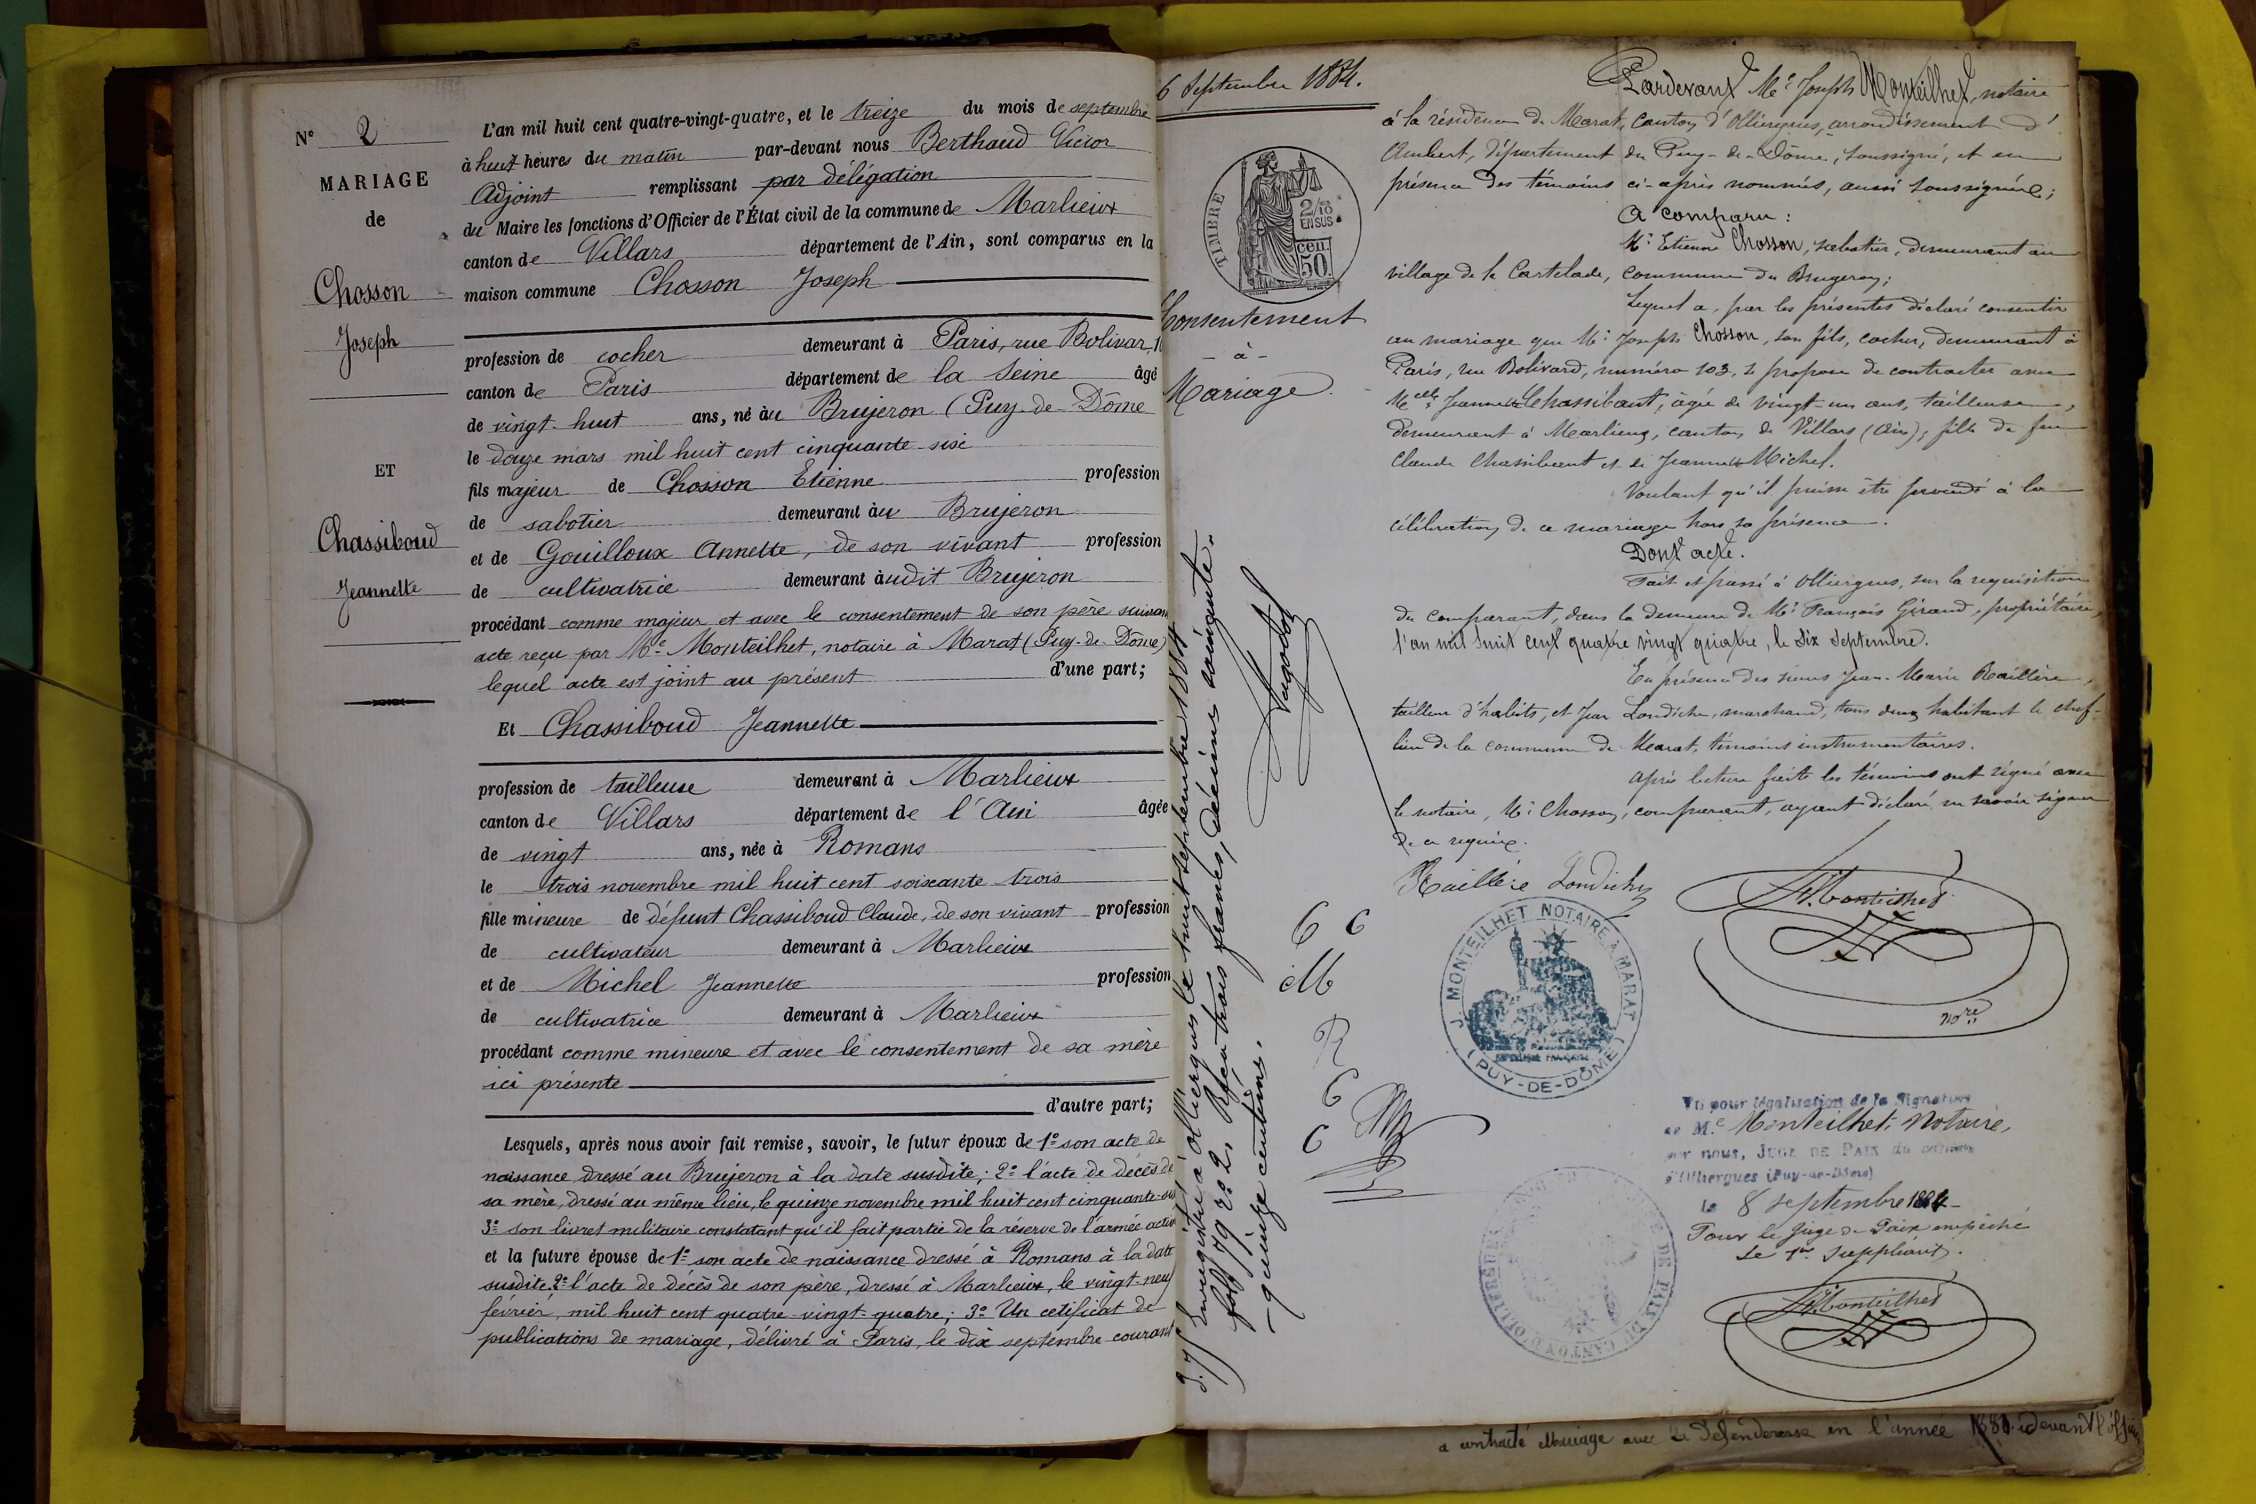 N° 2
MARIAGE
de
Chosson
Joseph
ET
Chassiboud
Jeannette
L'an mil huit cent quatre-vingt-quatre, et le treize du mois de septembre
à huit heures du matin par-devant nous Berthaud Victor
Adjoint remplissant par délégation
du Maire les fonctions d'Officier de l'État civil de la commune de Marlieux
canton de Villars département de l'Ain, sont comparus en la
maison commune Chosson Joseph
profession de cocher demeurant à Paris, rue Bolivar,
canton de Paris département de la Seine âgé
de vingt-huit ans, né au Brujeron (Puy-de-Dôme
le douze mars mil huit cent cinquante-six
fils majeur de Chosson Etienne profession
de sabotier demeurant au Brujeron
et de Gouilloux Annette, de son vivant profession
de cultivatrice demeurant audit Brujeron
procédant comme majeur et avec le consentement de son père suivant
acte reçu par Me Monteilhet, notaire à Marat (Puy-de-Dôme)
lequel acte est joint au présent d'une part;
Et Chassiboud Jeannette
profession de tailleuse demeurant à Marlieux
canton de Villars département de l'Ain âgée
de vingt ans, née à Romans
le trois novembre mil huit cent soixante-trois
fille mineure de défunt Chassiboud Claude, de son vivant profession
de cultivateur demeurant à Marlieux
et de Michel Jeannette profession
de cultivatrice demeurant à Marlieux
procédant comme mineure et avec le consentement de sa mère
ici présente
d'autre part;
Lesquels, après nous avoir fait remise, savoir, le futur époux de 1° son acte de
naissance dressé au Brujeron à la date susdite; 2° l'acte de décès de
sa mère, dressé au même lieu, le quinze novembre mil huit cent cinquante-six
3° son livret militaire constatant qu'il fait partie de la réserve de l'armée active
et la future épouse de 1° son acte de naissance dressé à Romans à la date
susdite 2° l'acte de décès de son père, dressé à Marlieux, le vingt-neuf
février mil huit cent quatre-vingt-quatre; 3° Un cetificat de
publications de mariage, délivré à Paris, le dix septembre courant
6 Septembre 1884.
TIMBRE
2/10
EN SUS
cen.
50
Consentement
- à -
Mariage.
Pardevant Me Joseph Monteilhet, notaire
à la résidence de Marat, canton d'Olliergues, arrondissement d'
Ambert, département du Puy-de-Dôme, soussigné, et en
présence des témoins ci-après nommés, aussi soussignés;
A comparu:
Mr Etienne Chosson, sabotier, demeurant au
village de la Castelade, commune du Brugeron;
Lequel a, par les présentes déclaré consentir
au mariage que Mr Joseph Chosson, son fils, cocher, demeurant à
Paris, rue Bolivard, numéro 103, se propose de contracter avec
Melle Jeannette Chassibout, âgée de vingt-un ans, tailleuse,
demeurant à Marlieux, canton de Villars (Ain); fille de feu
Claude Chassibout et de Jeannette Michel.
Voulant qu'il puisse être procédé à la
célébration de ce mariage hors sa présence.
Dont acte.
Fait et passé à Olliergues, sur la requisition
du comparant, dans la demeure de Mr François Giraud, propriétaire,
l'an mil huit cent quatre vingt quatre, le six septembre.
En présence des sieurs Jean-Marie Raillère,
tailleur d'habits, et Jean Londiche, marchand, tous deux habitant le chef-
lieu de la commune de Marat, témoins instrumentaires.
Après lecture faite les témoins ont signé avec
le notaire, Mr Chosson, comparant, ayant déclaré ne savoir signer
de ce requis.
Raillère Londiche
J. Monteilhet
nore
J. MONTEILHET NOTAIRE A MARAT
(PUY-DE-DÔME)
6 C
M
R
6
6
Enregistré à Olliergues le huit septembre 1884
fol 79 r° c 2. Reçu trois francs, décimes soixante-
-quinze centimes.
Vu pour légalisation de la Signature
de M.e Monteilhet, Notaire,
par nous, JUGE DE PAIX du canton
d'Olliergues (Puy-de-Dôme)
le 8 septembre 1884
Pour le Juge de Paix empêché
Le 1er Suppléant.
J. Monteilhet
DE PAIX DU CANTON D'OLLIERGUES
a contracté Mariage avec la Défenderesse en l'année 188 devant l'offi